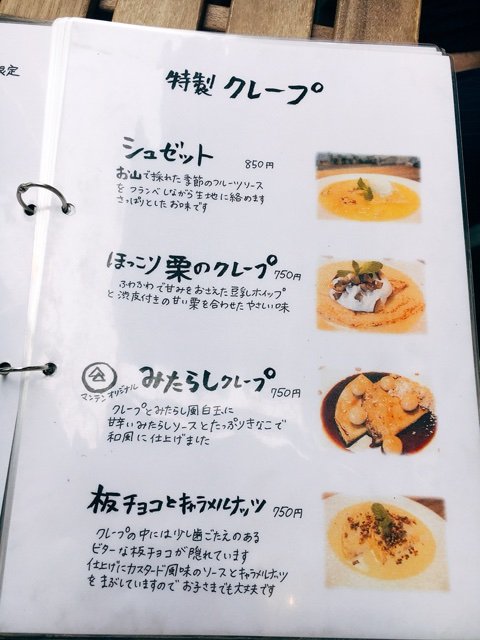 限定
特製 クレープ
シュゼット 850円
お山で採れた季節のフルーツソース
をフランベしながら生地に絡めます
さっぱりとしたお味です
ほっこり栗のクレープ 750円
ふわふわで甘みをおさえた豆乳ホイップ
と渋皮付きの甘い栗を合わせたやさしい味
マンテンオリジナル みたらしクレープ 750円
クレープとみたらし風白玉に
甘辛いみたらしソースとたっぷりきなこで
和風に仕上げました
板チョコとキャラメルナッツ 750円
クレープの中には少し歯ごたえのある
ビターな板チョコが隠れています
仕上げにカスタード風味のソースとキャラメルナッツ
をまぶしていますのでお子さまでも大丈夫です